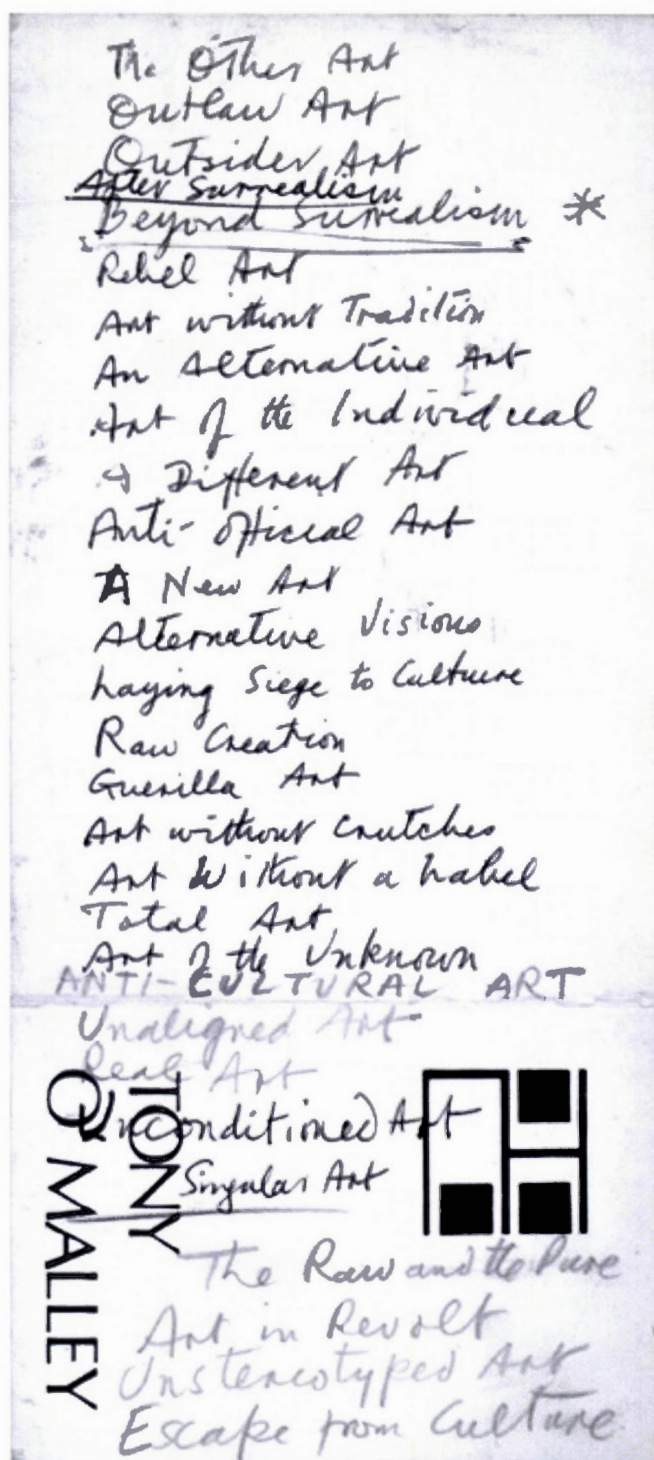 The Other Art
Outlaw Art
Outsider Art
After Surrealism
Beyond Surrealism *
Rebel Art
Art without Tradition
An Alternative Art
Art of the Individual
A Different Art
Anti-Official Art
A New Art
Alternative Visions
Laying Siege to Culture
Raw Creation
Guerilla Art
Art without Crutches
Art Without a Label
Total Art
Art of the Unknown
ANTI-CULTURAL ART
Unaligned Art
Real Art
Unconditioned Art
Singular Art
TONY
O'MALLEY
The Raw and the Pure
Art in Revolt
Unstereotyped Art
Escape from Culture